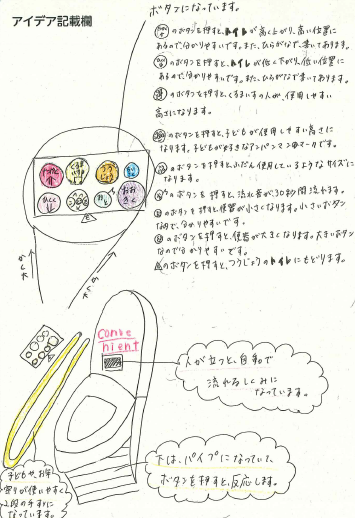 アイデア記載欄
ボタンになっています。
のボタンを押すと、トイレが高く上がり、高い位置に
あるので分かりやすいです。また、ひらがなで書いてあります。
のボタンを押すと、トイレが低く下がり、低い位置に
あるので分かりやすいです。また、ひらがなで書いてあります。
のボタンを押すと、くるまいすの人が、使用しやすい
高さになります。
のボタンを押すと、子どもが使用しやすい高さに
なります。子どもが好きなアンパンマンのマークです。
のボタンを押すと、ふだん使用しているようなサイズに
なります。
のボタンを押すと、流れ音が30秒間流れます。
のボタンを押すと、便器が小さくなります。小さいボタン
なので、分かりやすいです。
のボタンを押すと、便器が大きくなります。大きいボタン
なので分かりやすいです。
のボタンを押すと、つうじょうのトイレにもどります。
おおきく
conve
nient
人が立つと、自動で
流れるしくみに
なっています。
下は、パイプになっていて、
ボタンを押すと、反応します。
子どもや、お年
寄りが使いやすく
2段の手すりに
なっています。